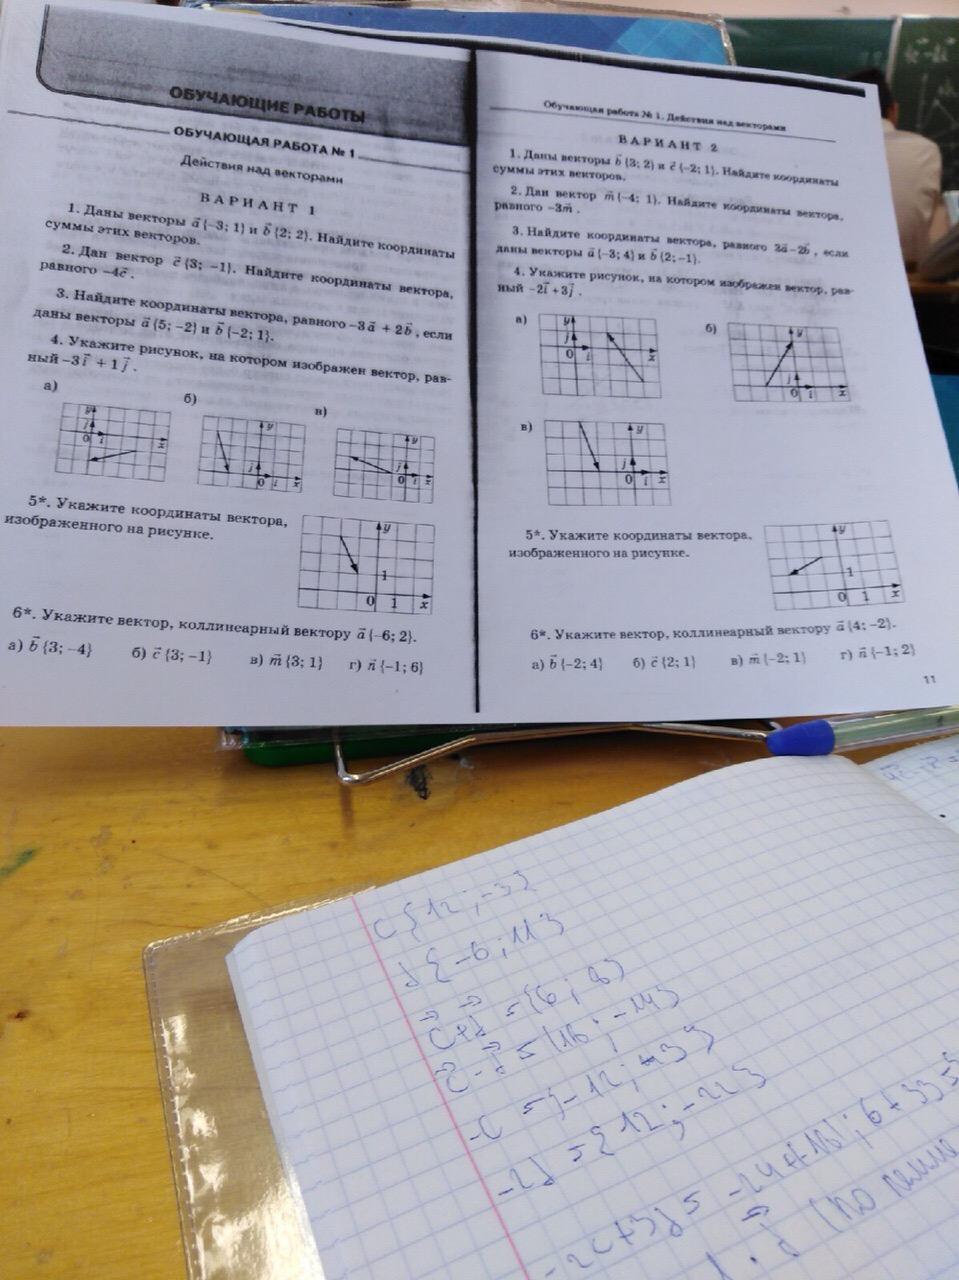 ОБУЧАЮЩИЕ РАБОТЫ
ОБУЧАЮЩАЯ РАБОТА № 1
Действия над векторами
ВАРИАНТ 1
1. Даны векторы a⃗ {–3; 1} и b⃗ {2; 2}. Найдите координаты
суммы этих векторов.
2. Дан вектор c⃗ {3; –1}. Найдите координаты вектора,
равного –4c⃗.
3. Найдите координаты вектора, равного –3a⃗ + 2b⃗, если
даны векторы a⃗ {5; –2} и b⃗ {–2; 1}.
4. Укажите рисунок, на котором изображен вектор, рав-
ный –3i⃗ + 1j⃗.
а) б) в)
y j 0 i x
y j 0 i x
y j 0 i x
5*. Укажите координаты вектора,
изображенного на рисунке.
y 1 0 1 x
6*. Укажите вектор, коллинеарный вектору a⃗ {–6; 2}.
а) b⃗ {3; –4} б) c⃗ {3; –1} в) m⃗ {3; 1} г) n⃗ {–1; 6}
Обучающая работа № 1. Действия над векторами
ВАРИАНТ 2
1. Даны векторы b⃗ {3; 2} и c⃗ {–2; 1}. Найдите координаты
суммы этих векторов.
2. Дан вектор m⃗ {–4; 1}. Найдите координаты вектора,
равного –3m⃗.
3. Найдите координаты вектора, равного 3a⃗ – 2b⃗, если
даны векторы a⃗ {–3; 4} и b⃗ {2; –1}.
4. Укажите рисунок, на котором изображен вектор, рав-
ный –2i⃗ + 3j⃗.
а) б)
y j 0 i x
y j 0 i x
в)
y j 0 i x
5*. Укажите координаты вектора,
изображенного на рисунке.
y 1 0 1 x
6*. Укажите вектор, коллинеарный вектору a⃗ {4; –2}.
а) b⃗ {–2; 4} б) c⃗ {2; 1} в) m⃗ {–2; 1} г) n⃗ {–1; 2}
11
c {12; -3}
j {-6; 11}
c⃗+j⃗ = {6; 8}
c⃗-j⃗ = {16; -14}
-2j = {12; -22}